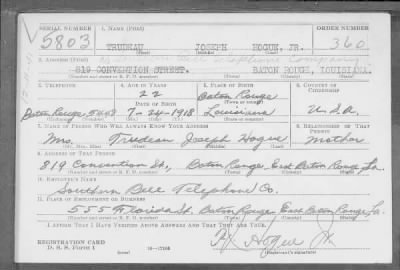 SERIAL NUMBER 1. NAME (Print) ORDER NUMBER
5803 TRUDEAU JOSEPH HOGUE, JR. 360
(First) (Middle) (Last)
2. ADDRESS (Print) Bell Telephone Company
819 CONVENTION STREET. BATON ROUGE, LOUISIANA.
3. TELEPHONE 4. AGE IN YEARS 5. PLACE OF BIRTH 6. COUNTRY OF CITIZENSHIP
22 Baton Rouge
DATE OF BIRTH (Town or county)
Baton Rouge 5458 7-24-1918 Louisiana U.S.A.
(Exchange) (Number) (Mo.) (Day) (Yr.) (State or country)
7. NAME OF PERSON WHO WILL ALWAYS KNOW YOUR ADDRESS 8. RELATIONSHIP OF THAT PERSON
Mrs. Trudeau Joseph Hogue mother
(Mr., Mrs., Miss) (First) (Middle) (Last)
9. ADDRESS OF THAT PERSON
819 Convention St., Baton Rouge, East Baton Rouge, La.
(Number and street or R. F. D. number) (Town) (County) (State)
10. EMPLOYER'S NAME
Southern Bell Telephone Co.
11. PLACE OF EMPLOYMENT OR BUSINESS
555 Florida St. Baton Rouge East Baton Rouge La.
(Number and street or R. F. D. number) (Town) (County) (State)
I AFFIRM THAT I HAVE VERIFIED ABOVE ANSWERS AND THAT THEY ARE TRUE.
REGISTRATION CARD
D. S. S. Form 1 (over) 16—17105 Hogue Jr.
(Registrant's signature)